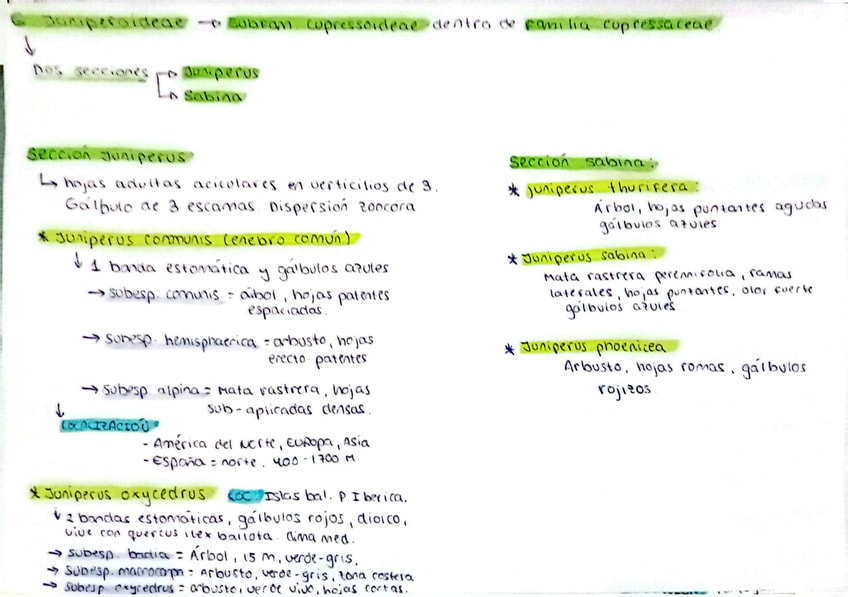 G Juniperoideae → Subfam Cupressoideae dentro de familia cupressaceae
↓
Dos secciones → Juniperus
→ Sabina
Sección Juniperus
↳ hojas adultas aciculares en verticilios de 3.
Gálbulo de 3 escamas. Dispersión zoocora
* Juniperus communis (enebro común)
↓ 1 banda estomática y gálbulos azules
→ subesp. comunis = aíbol, hojas patentes
espaciadas.
→ subesp. hemisphaerica = arbusto, hojas
erecto patentes
→ subesp. alpina = Mata rastrera, hojas
sub-aplicadas densas.
↓
LOCALIZACIÓN
- América del Norte, Europa, Asia
- España = norte. 400-1700 M
* Juniperus oxycedrus LOC Islas bal. P. Iberica.
↓ 2 bandas estomáticas, gálbulos rojos, dioico,
vive con quercus ilex ballota. Clima med.
→ subesp. badia = Árbol, 15 m, verde-gris.
→ subesp. macrocarpa = Arbusto, verde-gris, zona costera
→ subesp oxycedrus = arbusto, verde vivo, hojas cortas.
Sección sabina:
* juniperus thurifera:
Árbol, hojas puntantes agudas
gálbulos azules
* Juniperus sabina:
Mata rastrera perennifolia, ramas
laterales, hojas puntantes, olor fuerte
gálbulos azules
* Juniperus phoenicea
Arbusto, hojas romas, gálbulos
rojizos